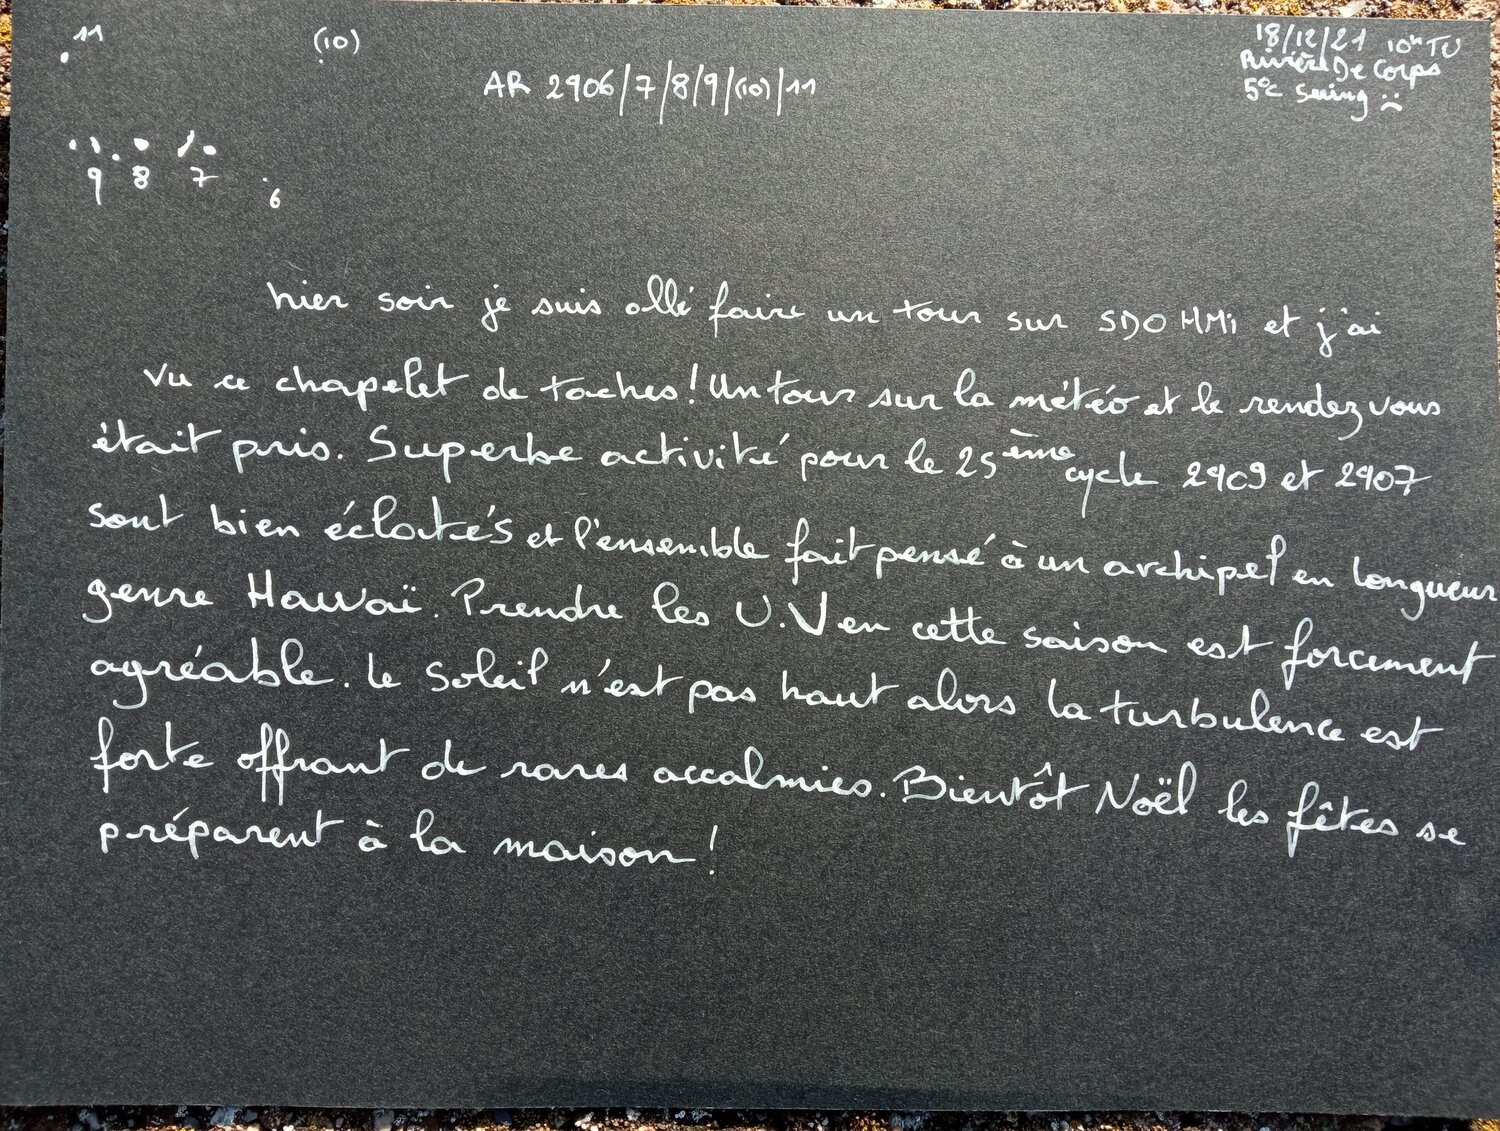 11
(10)
18/12/21 10h TU
Rivière De Corps
5°c Seeing :(
AR 2906/7/8/9/(10)/11
9 8 7
6
hier soir je suis allé faire un tour sur SDO HMi et j'ai
vu ce chapelet de taches! Un tour sur la météo et le rendez vous
était pris. Superbe activité pour le 25ème cycle 2909 et 2907
sont bien éclatés et l'ensemble fait pensé à un archipel en longueur
genre Hawaï. Prendre les U.V en cette saison est forcement
agréable. Le Soleil n'est pas haut alors la turbulence est
forte offrant de rares accalmies. Bientôt Noël les fêtes se
préparent à la maison!